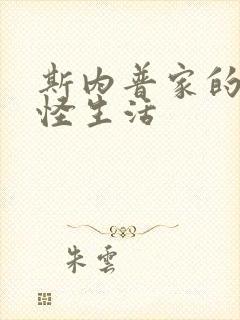 斯内普家的
怪生活
朱雲